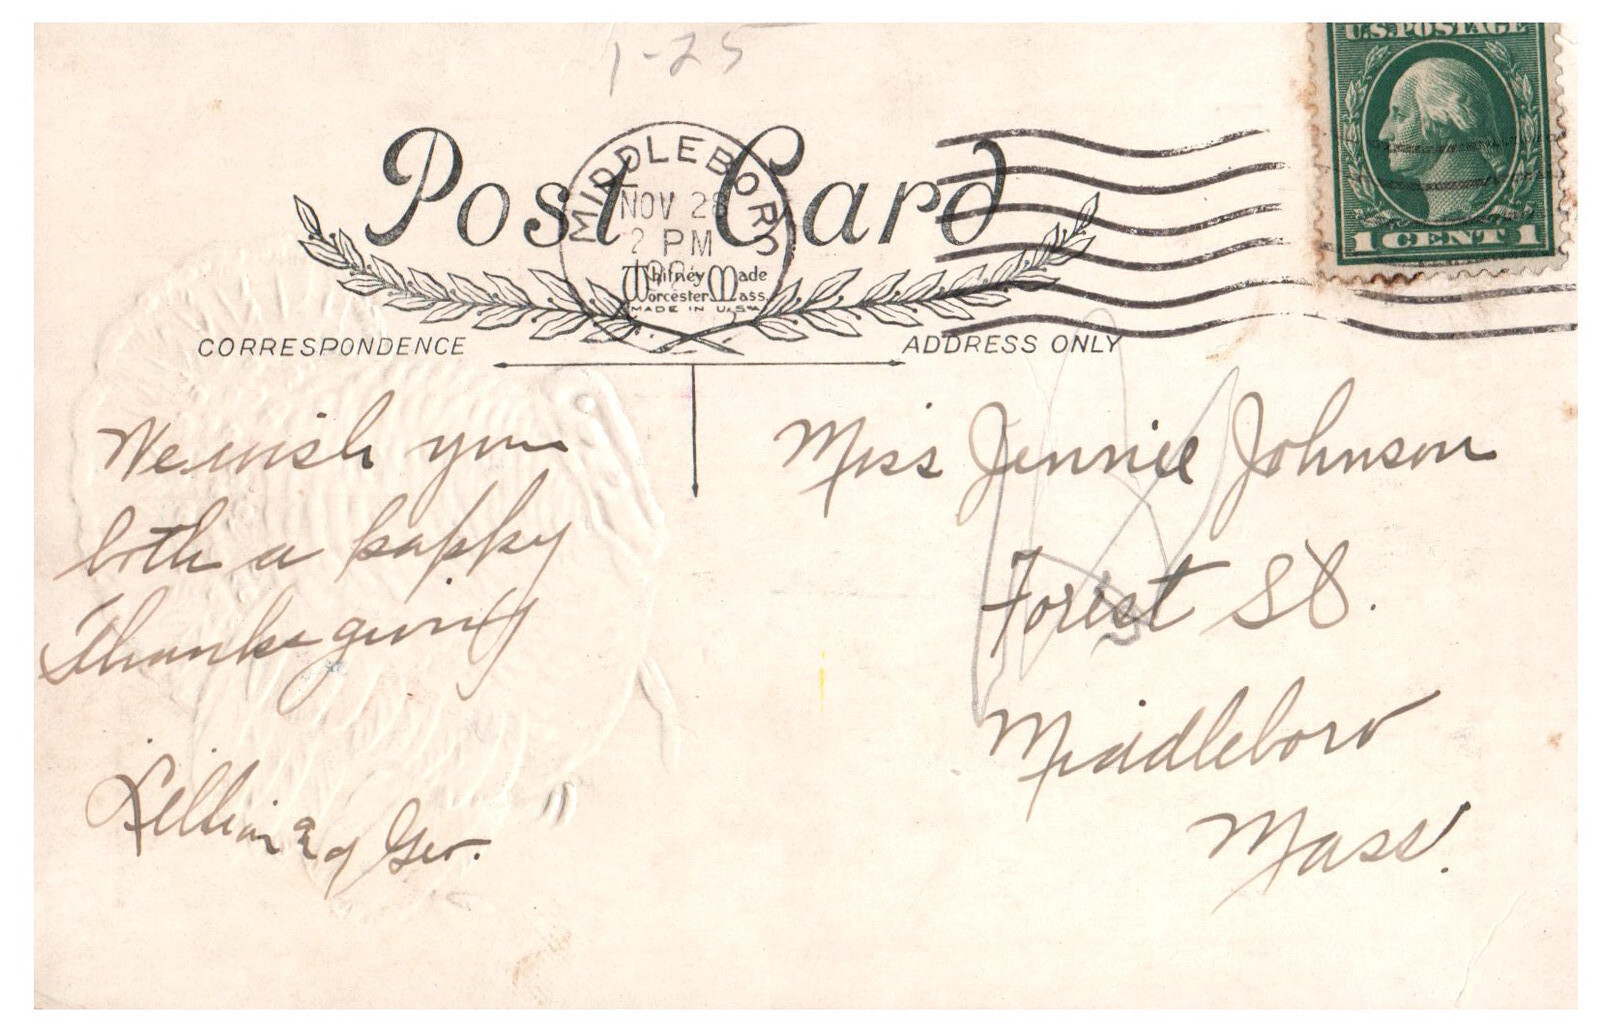 1-25
U.S. POSTAGE
Post Card
MIDDLEBORO
NOV 2
2 PM
Whitney Made
Worcester Mass.
MADE IN U.S.A.
1 CENT 1
CORRESPONDENCE
ADDRESS ONLY
We wish you
both a happy
Thanksgiving
Lillian & Geo.
Miss Jennie Johnson
Forest St.
Middleboro
Mass.